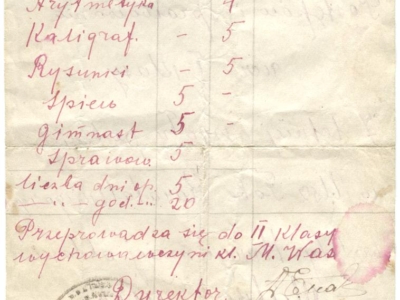 Arytmetyka - 4
Kaligraf. - 5
Rysunki - 5
Śpiew 5 -
gimnast 5 -
Sprawow 5
liczba dni op. 5
— " — " — god. " 20
Przeprowadza się do II klasy
wychowawczyni kl. M. Was
Dyrektor